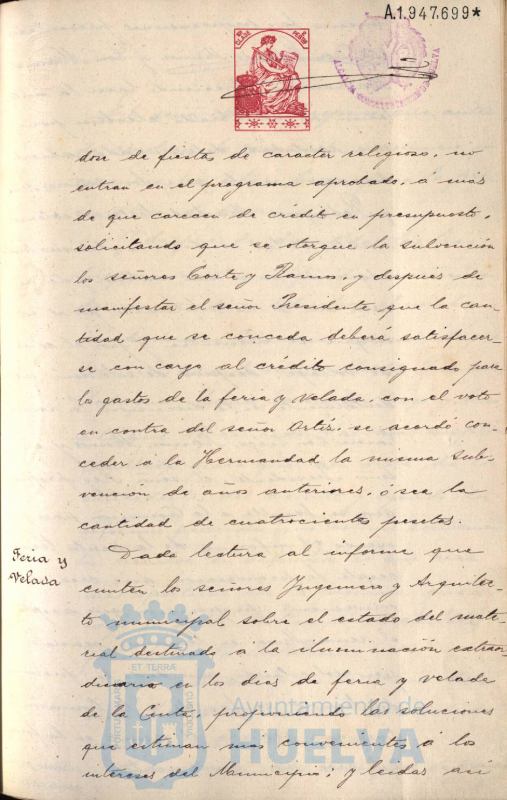 A.1.947.699*
dose de fiestas de caracter religioso, no
entran en el programa aprobado, á más
de que carecen de crédito en presupuesto,
solicitando que se otorgue la subvención
los señores Corte y Ramos, y después de
manifestar el señor Presidente que la can-
tidad que se conceda deberá satisfacer-
se con cargo al crédito consignado para
los gastos de la feria y velada, con el voto
en contra del señor Ortiz, se acordó con-
ceder á la Hermandad la misma sub-
vención de años anteriores, ó sea la
cantidad de cuatrocientas pesetas.
Feria y
Velada
Dada lectura al informe que
emiten los señores Ingeniero y Arquitec-
to municipal sobre el estado del mate-
rial destinado á la iluminación extraor-
dinaria en los dias de feria y velada
de la Cinta, proponiendo las soluciones
que estiman mas convenientes á los
intereses del Municipio; y leidas asi
ET TERRÆ
Ayuntamiento de
HUELVA